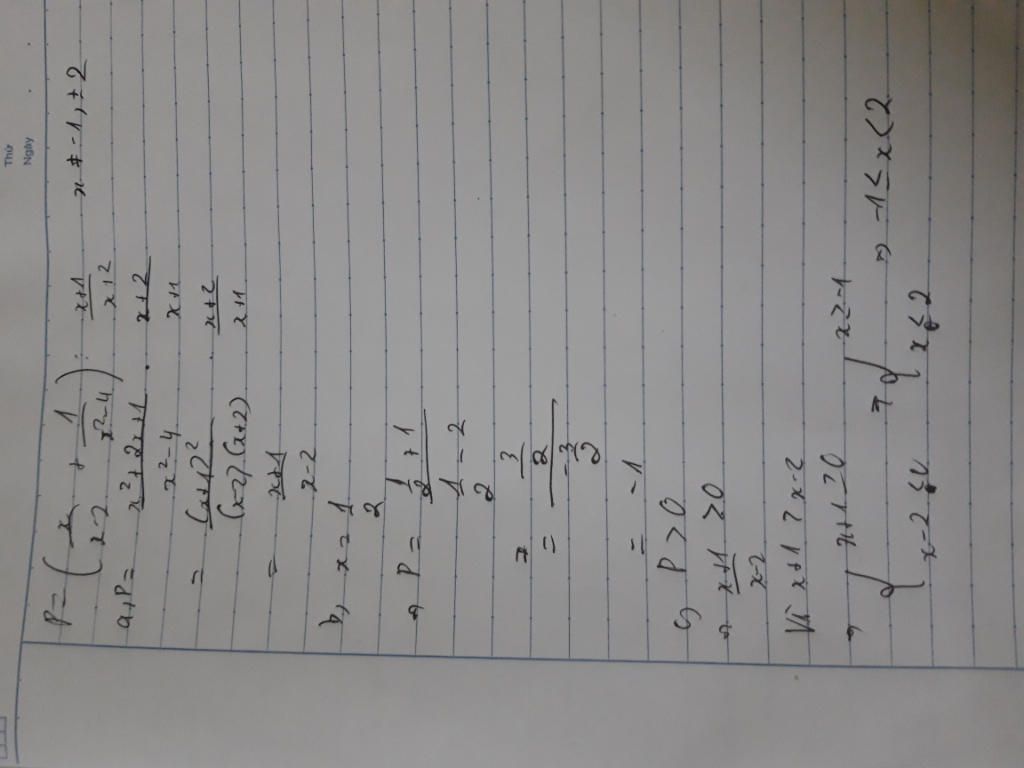 Thứ
Ngày
P = ( x/(x-2) + 1/(x²-4) ) : (x+1)/(x+2)   x ≠ -1, ±2
a, P = (x²+2x+1)/(x²-4) . (x+2)/(x+1)
= (x+1)²/((x-2)(x+2)) . (x+2)/(x+1)
= (x+1)/(x-2)
b, x = 1/2
⇒ P = (1/2 + 1)/(1/2 - 2)
= (3/2)/(-3/2)
= -1
c, P > 0
⇒ (x+1)/(x-2) > 0
Vì x+1 > x-2
⇒ { x+1 ≥ 0 ⇒ { x ≥ -1 ⇒ -1 ≤ x < 2
x-2 < 0   x < 2